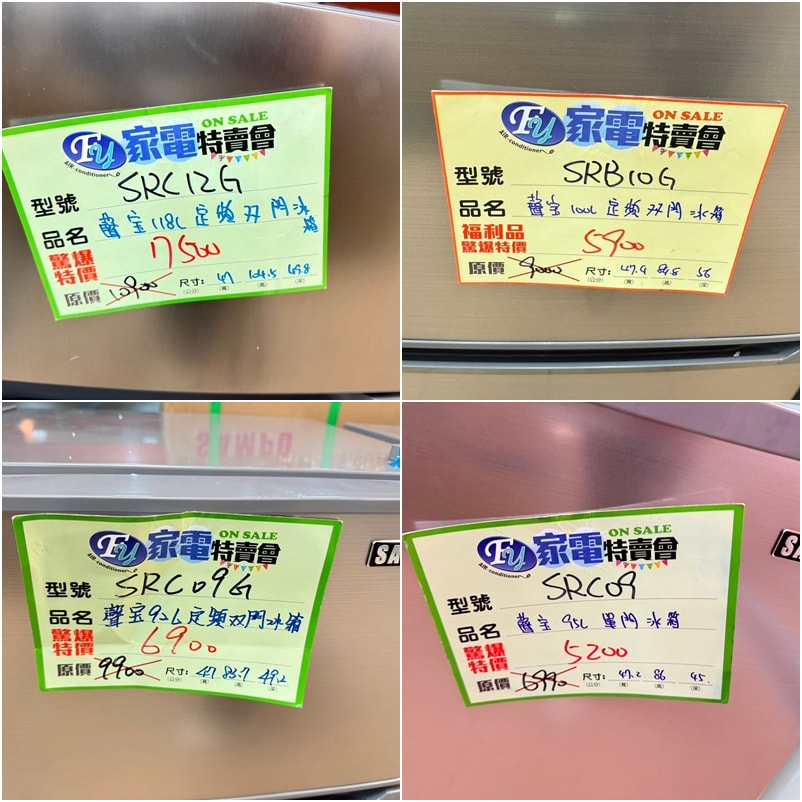 FU 家電特賣會 ON SALE
AIR-conditioner
型號 SRC12G
品名 聲宝118L定頻双門冰箱
驚爆特價 17500
原價 10900 尺寸: 47 104.5 49.8
(公分) (寬) (高) (深)
FU 家電特賣會 ON SALE
AIR-conditioner
型號 SRB10G
品名 聲宝100L定頻双門冰箱
福利品
驚爆特價 5900
原價 9000 尺寸: 47.9 84.8 56
(公分) (寬) (高) (深)
SAMPO
FU 家電特賣會 ON SALE
AIR-conditioner
型號 SRC09G
品名 聲宝92L定頻双門冰箱
驚爆特價 6900
原價 9900 尺寸: 47 83.7 49.2
(公分) (寬) (高) (深)
SA
FU 家電特賣會 ON SALE
AIR-conditioner
型號 SRC09
品名 聲宝95L單門冰箱
驚爆特價 5200
原價 6990 尺寸: 47.2 86 45.
(公分) (寬) (高) (深)
SA